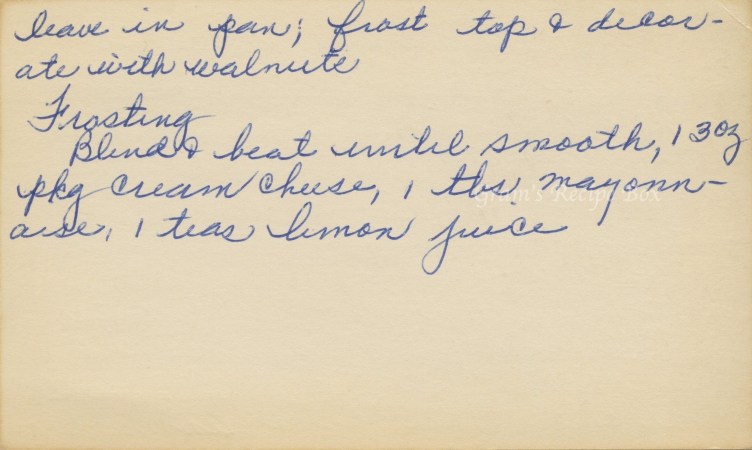 leave in pan; frost top & decor-
ate with walnuts
Frosting
Blend & beat until smooth, 1 3oz
pkg cream cheese, 1 tbs. mayonn-
aise, 1 teas lemon juice
Gram's Recipe Box